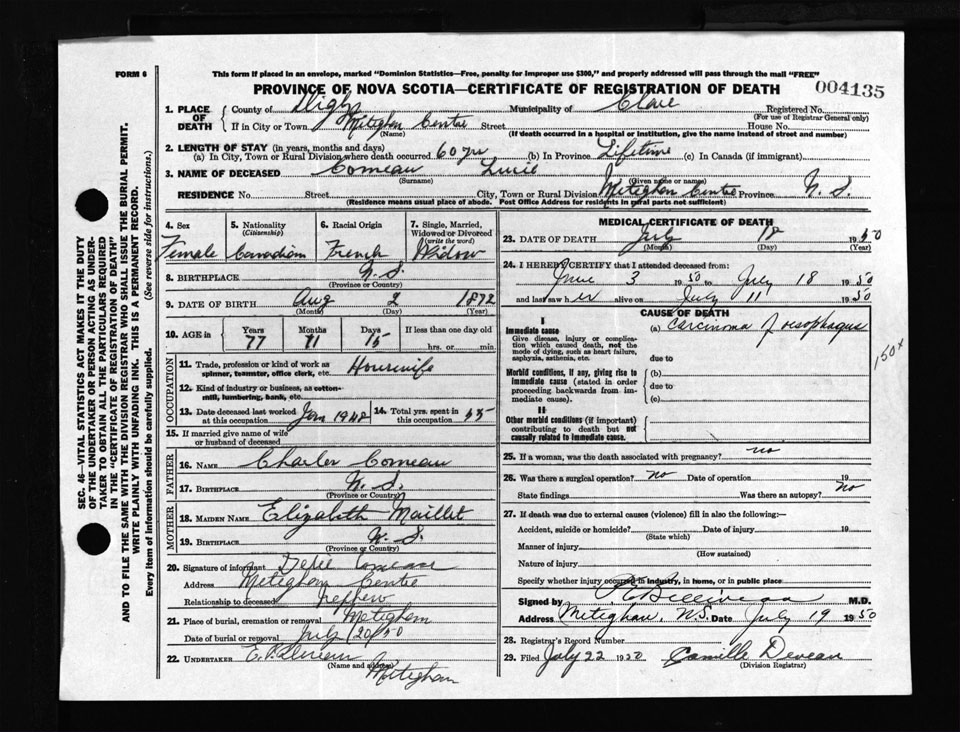 FORM 6
This form if placed in an envelope, marked "Dominion Statistics—Free, penalty for improper use $300," and properly addressed will pass through the mail "FREE"
PROVINCE OF NOVA SCOTIA—CERTIFICATE OF REGISTRATION OF DEATH
004135
1. PLACE OF DEATH County of Digby Municipality of Clare Registered No.
(For use of Registrar General only)
If in City or Town Meteghan Centre Street House No.
(Name) (If death occurred in a hospital or institution, give the name instead of street and number)
2. LENGTH OF STAY (in years, months and days)
(a) In City, Town or Rural Division where death occurred 60 yr (b) In Province Lifetime (c) In Canada (if immigrant)
3. NAME OF DECEASED Comeau Lucie
(Surname) (Given name or names)
RESIDENCE No. Street City, Town or Rural Division Meteghan Centre Province N. S.
(Residence means usual place of abode. Post Office Address for residents in rural parts not sufficient)
4. Sex 5. Nationality (Citizenship) 6. Racial Origin 7. Single, Married, Widowed or Divorced (write the word)
Female Canadian French Widow
8. BIRTHPLACE N. S.
(Province or Country)
9. DATE OF BIRTH Aug 2 1872
(Month) (Day) (Year)
10. AGE in Years Months Days If less than one day old
77 11 15 hrs. or min.
OCCUPATION
11. Trade, profession or kind of work as spinner, teamster, office clerk, etc. Housewife
12. Kind of industry or business, as cotton-mill, lumbering, bank, etc.
13. Date deceased last worked at this occupation Jan 1948 14. Total yrs. spent in this occupation
15. If married give name of wife or husband of deceased
FATHER
16. NAME Charles Comeau
17. BIRTHPLACE N. S.
(Province or Country)
MOTHER
18. MAIDEN NAME Elizabeth Maillet
19. BIRTHPLACE N. S.
(Province or Country)
20. Signature of informant Comeau
Address Meteghan Centre
Relationship to deceased nephew
21. Place of burial, cremation or removal Meteghan
Date of burial or removal July 20/50
22. UNDERTAKER
(Name and address)
Meteghan
MEDICAL CERTIFICATE OF DEATH
23. DATE OF DEATH July 18 1950
(Month) (Day) (Year)
24. I HEREBY CERTIFY that I attended deceased from:
June 3 1950 to July 18 1950
and last saw her alive on July 11 1950
CAUSE OF DEATH
I
Immediate cause (a) Carcinoma of oesophagus
Give disease, injury or complication which caused death, not the mode of dying, such as heart failure, asphyxia, asthenia, etc.
due to
150x
Morbid conditions, if any, giving rise to immediate cause (stated in order proceeding backwards from immediate cause).
(b)
due to
(c)
II
Other morbid conditions (if important) contributing to death but not causally related to immediate cause.
25. If a woman, was the death associated with pregnancy? no
26. Was there a surgical operation? no Date of operation 19
State findings Was there an autopsy? no
27. If death was due to external causes (violence) fill in also the following:—
Accident, suicide or homicide? Date of injury 19
(State which)
Manner of injury
(How sustained)
Nature of injury
Specify whether injury occurred in industry, in home, or in public place
Signed by M.D.
Address Meteghan, N.S. Date July 19 1950
28. Registrar's Record Number
29. Filed July 22 1950 Camille Deveau
(Division Registrar)
SEC. 46—VITAL STATISTICS ACT MAKES IT THE DUTY
OF THE UNDERTAKER OR PERSON ACTING AS UNDER-
TAKER TO OBTAIN ALL THE PARTICULARS REQUIRED
IN THE "CERTIFICATE OF REGISTRATION OF DEATH"
AND TO FILE THE SAME WITH THE DIVISION REGISTRAR WHO SHALL ISSUE THE BURIAL PERMIT.
WRITE PLAINLY WITH UNFADING INK. THIS IS A PERMANENT RECORD.
Every item of information should be carefully supplied. (See reverse side for instructions.)